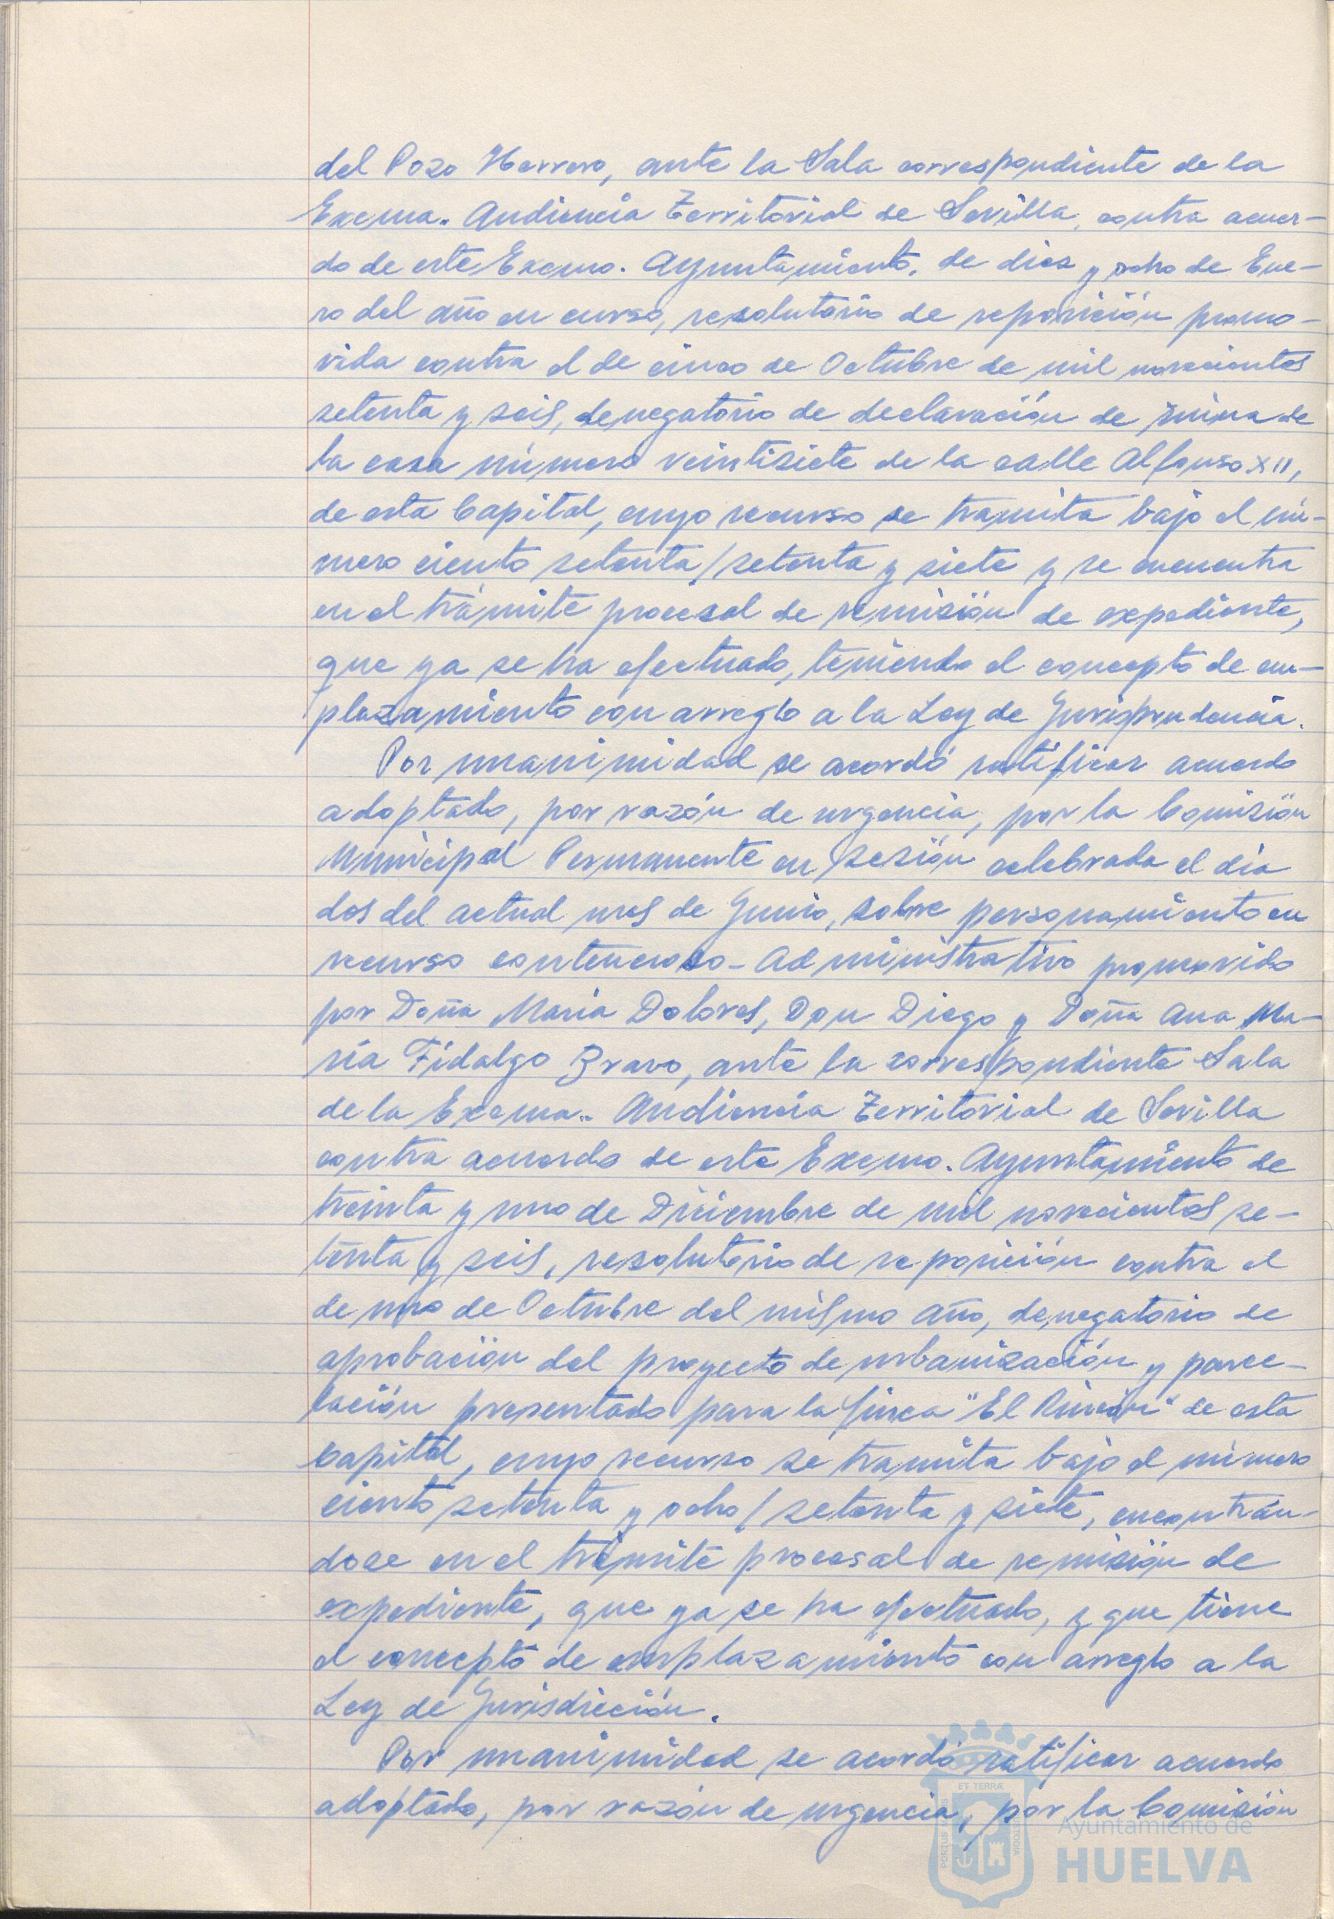 del Pozo Herrero, ante la Sala correspondiente de la
Excma. Audiencia Territorial de Sevilla, contra acuer-
do de este Excmo. Ayuntamiento, de diez y ocho de Ene-
ro del año en curso, resolutorio de reposición promo-
vida contra el de cinco de Octubre de mil novecientos
setenta y seis, denegatorio de declaración de ruina de
la casa número veintisiete de la calle Alfonso XII,
de esta Capital, cuyo recurso se tramita bajo el nú-
mero ciento setenta/setenta y siete y se encuentra
en el trámite procesal de remisión de expediente,
que ya se ha efectuado, teniendo el concepto de em-
plazamiento con arreglo a la Ley de Jurisprudencia.
Por unanimidad se acordó ratificar acuerdo
adoptado, por razón de urgencia, por la Comisión
Municipal Permanente en sesión celebrada el día
dos del actual mes de Junio, sobre personamiento en
recurso contencioso-administrativo promovido
por Doña María Dolores, Don Diego y Doña Ana Ma-
ría Fidalgo Bravo, ante la correspondiente Sala
de la Excma. Audiencia Territorial de Sevilla
contra acuerdo de este Excmo. Ayuntamiento de
treinta y uno de Diciembre de mil novecientos se-
tenta y seis, resolutorio de reposición contra el
de uno de Octubre del mismo año, denegatorio de
aprobación del proyecto de urbanización y parce-
lación presentado para la finca "El Rincón" de esta
capital, cuyo recurso se tramita bajo el número
ciento setenta y ocho/setenta y siete, encontrán-
dose en el trámite procesal de remisión de
expediente, que ya se ha efectuado, y que tiene
el concepto de emplazamiento con arreglo a la
Ley de Jurisdicción.
Por unanimidad se acordó ratificar acuerdo
adoptado, por razón de urgencia, por la Comisión
ET TERRÆ
PORTUS MARIS
CUSTODIA
Ayuntamiento de
HUELVA